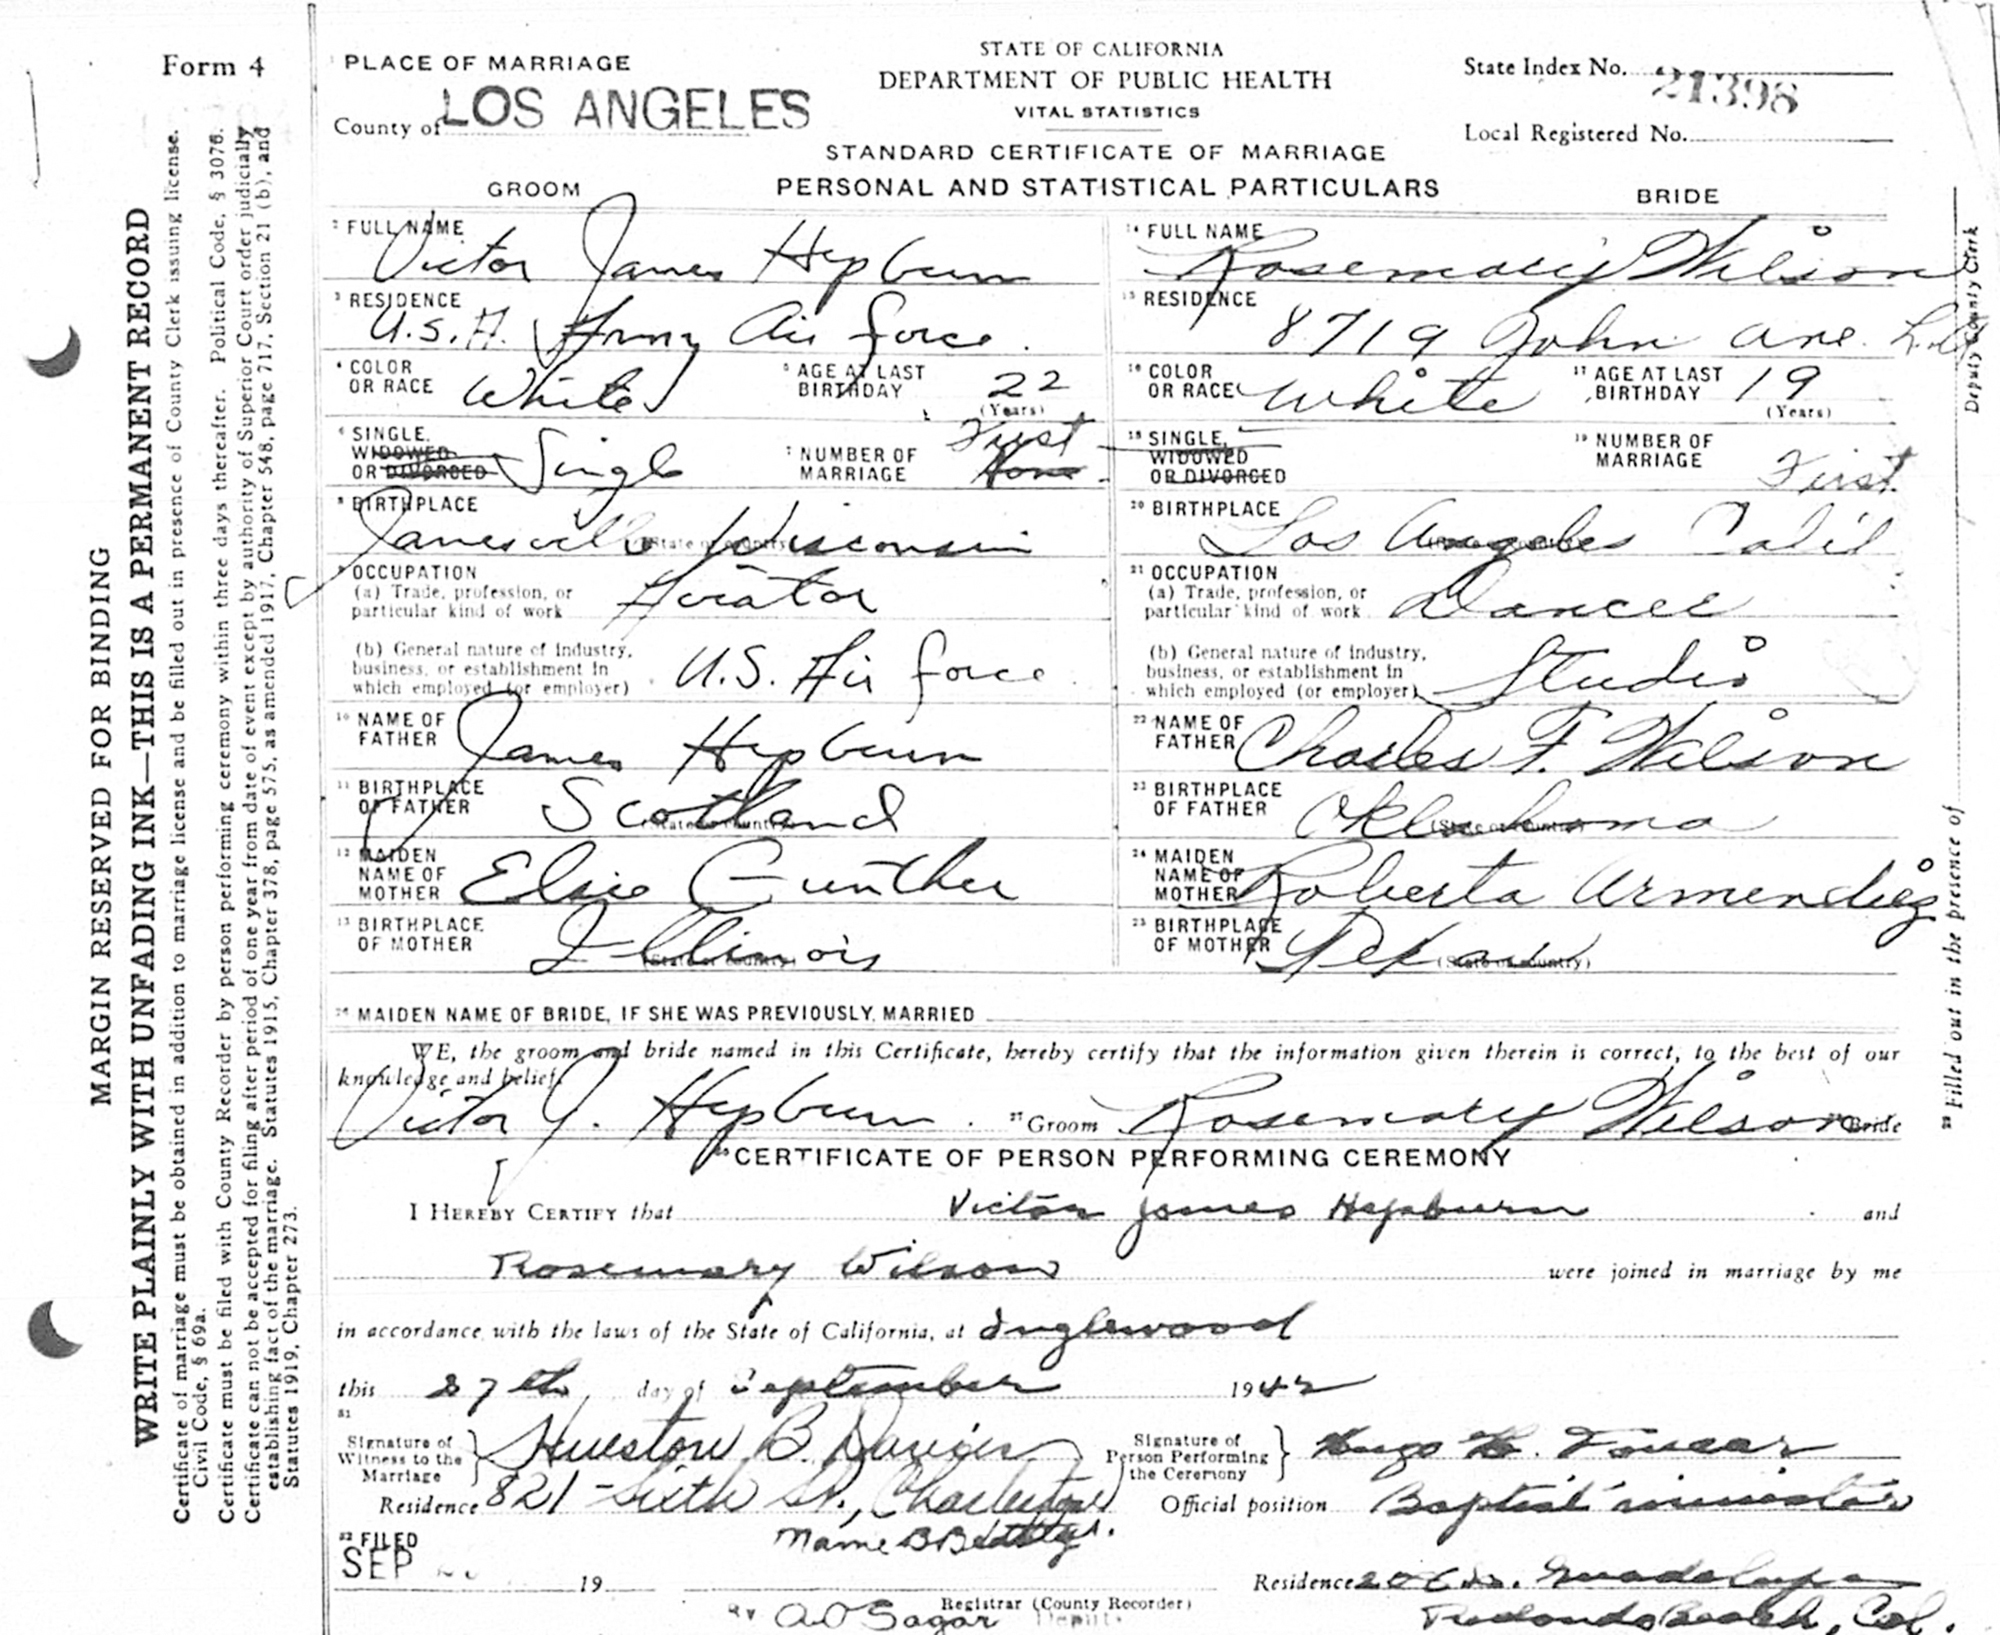 Form 4
MARGIN RESERVED FOR BINDING
WRITE PLAINLY WITH UNFADING INK—THIS IS A PERMANENT RECORD
Certificate of marriage must be obtained in addition to marriage license and be filled out in presence of County Clerk issuing license.
Civil Code, § 69a.
Certificate must be filed with County Recorder by person performing ceremony within three days thereafter. Political Code, § 3076.
Certificate can not be accepted for filing after period of one year from date of event except by authority of Superior Court order judicially
establishing fact of the marriage. Statutes 1915, Chapter 378, page 575, as amended 1917, Chapter 548, page 717, Section 21 (b), and
Statutes 1919, Chapter 273.
1 PLACE OF MARRIAGE
County of LOS ANGELES
STATE OF CALIFORNIA
DEPARTMENT OF PUBLIC HEALTH
VITAL STATISTICS
STANDARD CERTIFICATE OF MARRIAGE
PERSONAL AND STATISTICAL PARTICULARS
State Index No. 21398
Local Registered No.
GROOM
2 FULL NAME Victor James Hepburn
3 RESIDENCE U.S.A. Army Air force.
4 COLOR OR RACE White 5 AGE AT LAST BIRTHDAY 22 (Years)
6 SINGLE, WIDOWED OR DIVORCED Single 7 NUMBER OF MARRIAGE First None
8 BIRTHPLACE Janesville Wisconsin (State or country)
9 OCCUPATION
(a) Trade, profession, or particular kind of work Aviator
(b) General nature of industry, business, or establishment in which employed (or employer) U.S. Air force
10 NAME OF FATHER James Hepburn
11 BIRTHPLACE OF FATHER Scotland (State or country)
12 MAIDEN NAME OF MOTHER Elsie Gunther
13 BIRTHPLACE OF MOTHER Illinois (State or country)
BRIDE
14 FULL NAME Rosemary Wilson
15 RESIDENCE 8719 John Ave. L.A.
16 COLOR OR RACE White 17 AGE AT LAST BIRTHDAY 19 (Years)
18 SINGLE, WIDOWED OR DIVORCED 19 NUMBER OF MARRIAGE First
20 BIRTHPLACE Los Angeles Calif (State or country)
21 OCCUPATION
(a) Trade, profession, or particular kind of work Dancer
(b) General nature of industry, business, or establishment in which employed (or employer) Studio
22 NAME OF FATHER Charles F. Wilson
23 BIRTHPLACE OF FATHER Oklahoma (State or country)
24 MAIDEN NAME OF MOTHER Roberta Armendiez
25 BIRTHPLACE OF MOTHER Texas (State or country)
26 MAIDEN NAME OF BRIDE, IF SHE WAS PREVIOUSLY MARRIED
WE, the groom and bride named in this Certificate, hereby certify that the information given therein is correct, to the best of our
knowledge and belief.
Victor J. Hepburn. 27 Groom Rosemary Wilson Bride
29 Filled out in the presence of
Deputy County Clerk
30 CERTIFICATE OF PERSON PERFORMING CEREMONY
I HEREBY CERTIFY that Victor James Hepburn and
Rosemary Wilson were joined in marriage by me
in accordance with the laws of the State of California, at Inglewood
this 27th day of September 1942
31 Signature of Witness to the Marriage Hueston B.
Residence 821 - Sixth St., Charleston
Mame B
Signature of Person Performing the Ceremony Hugo
Official position Baptist minister
Residence Guadalupe
Redondo Beach, Cal.
32 FILED
SEP 19
Registrar (County Recorder)
BY A O Sagar Deputy